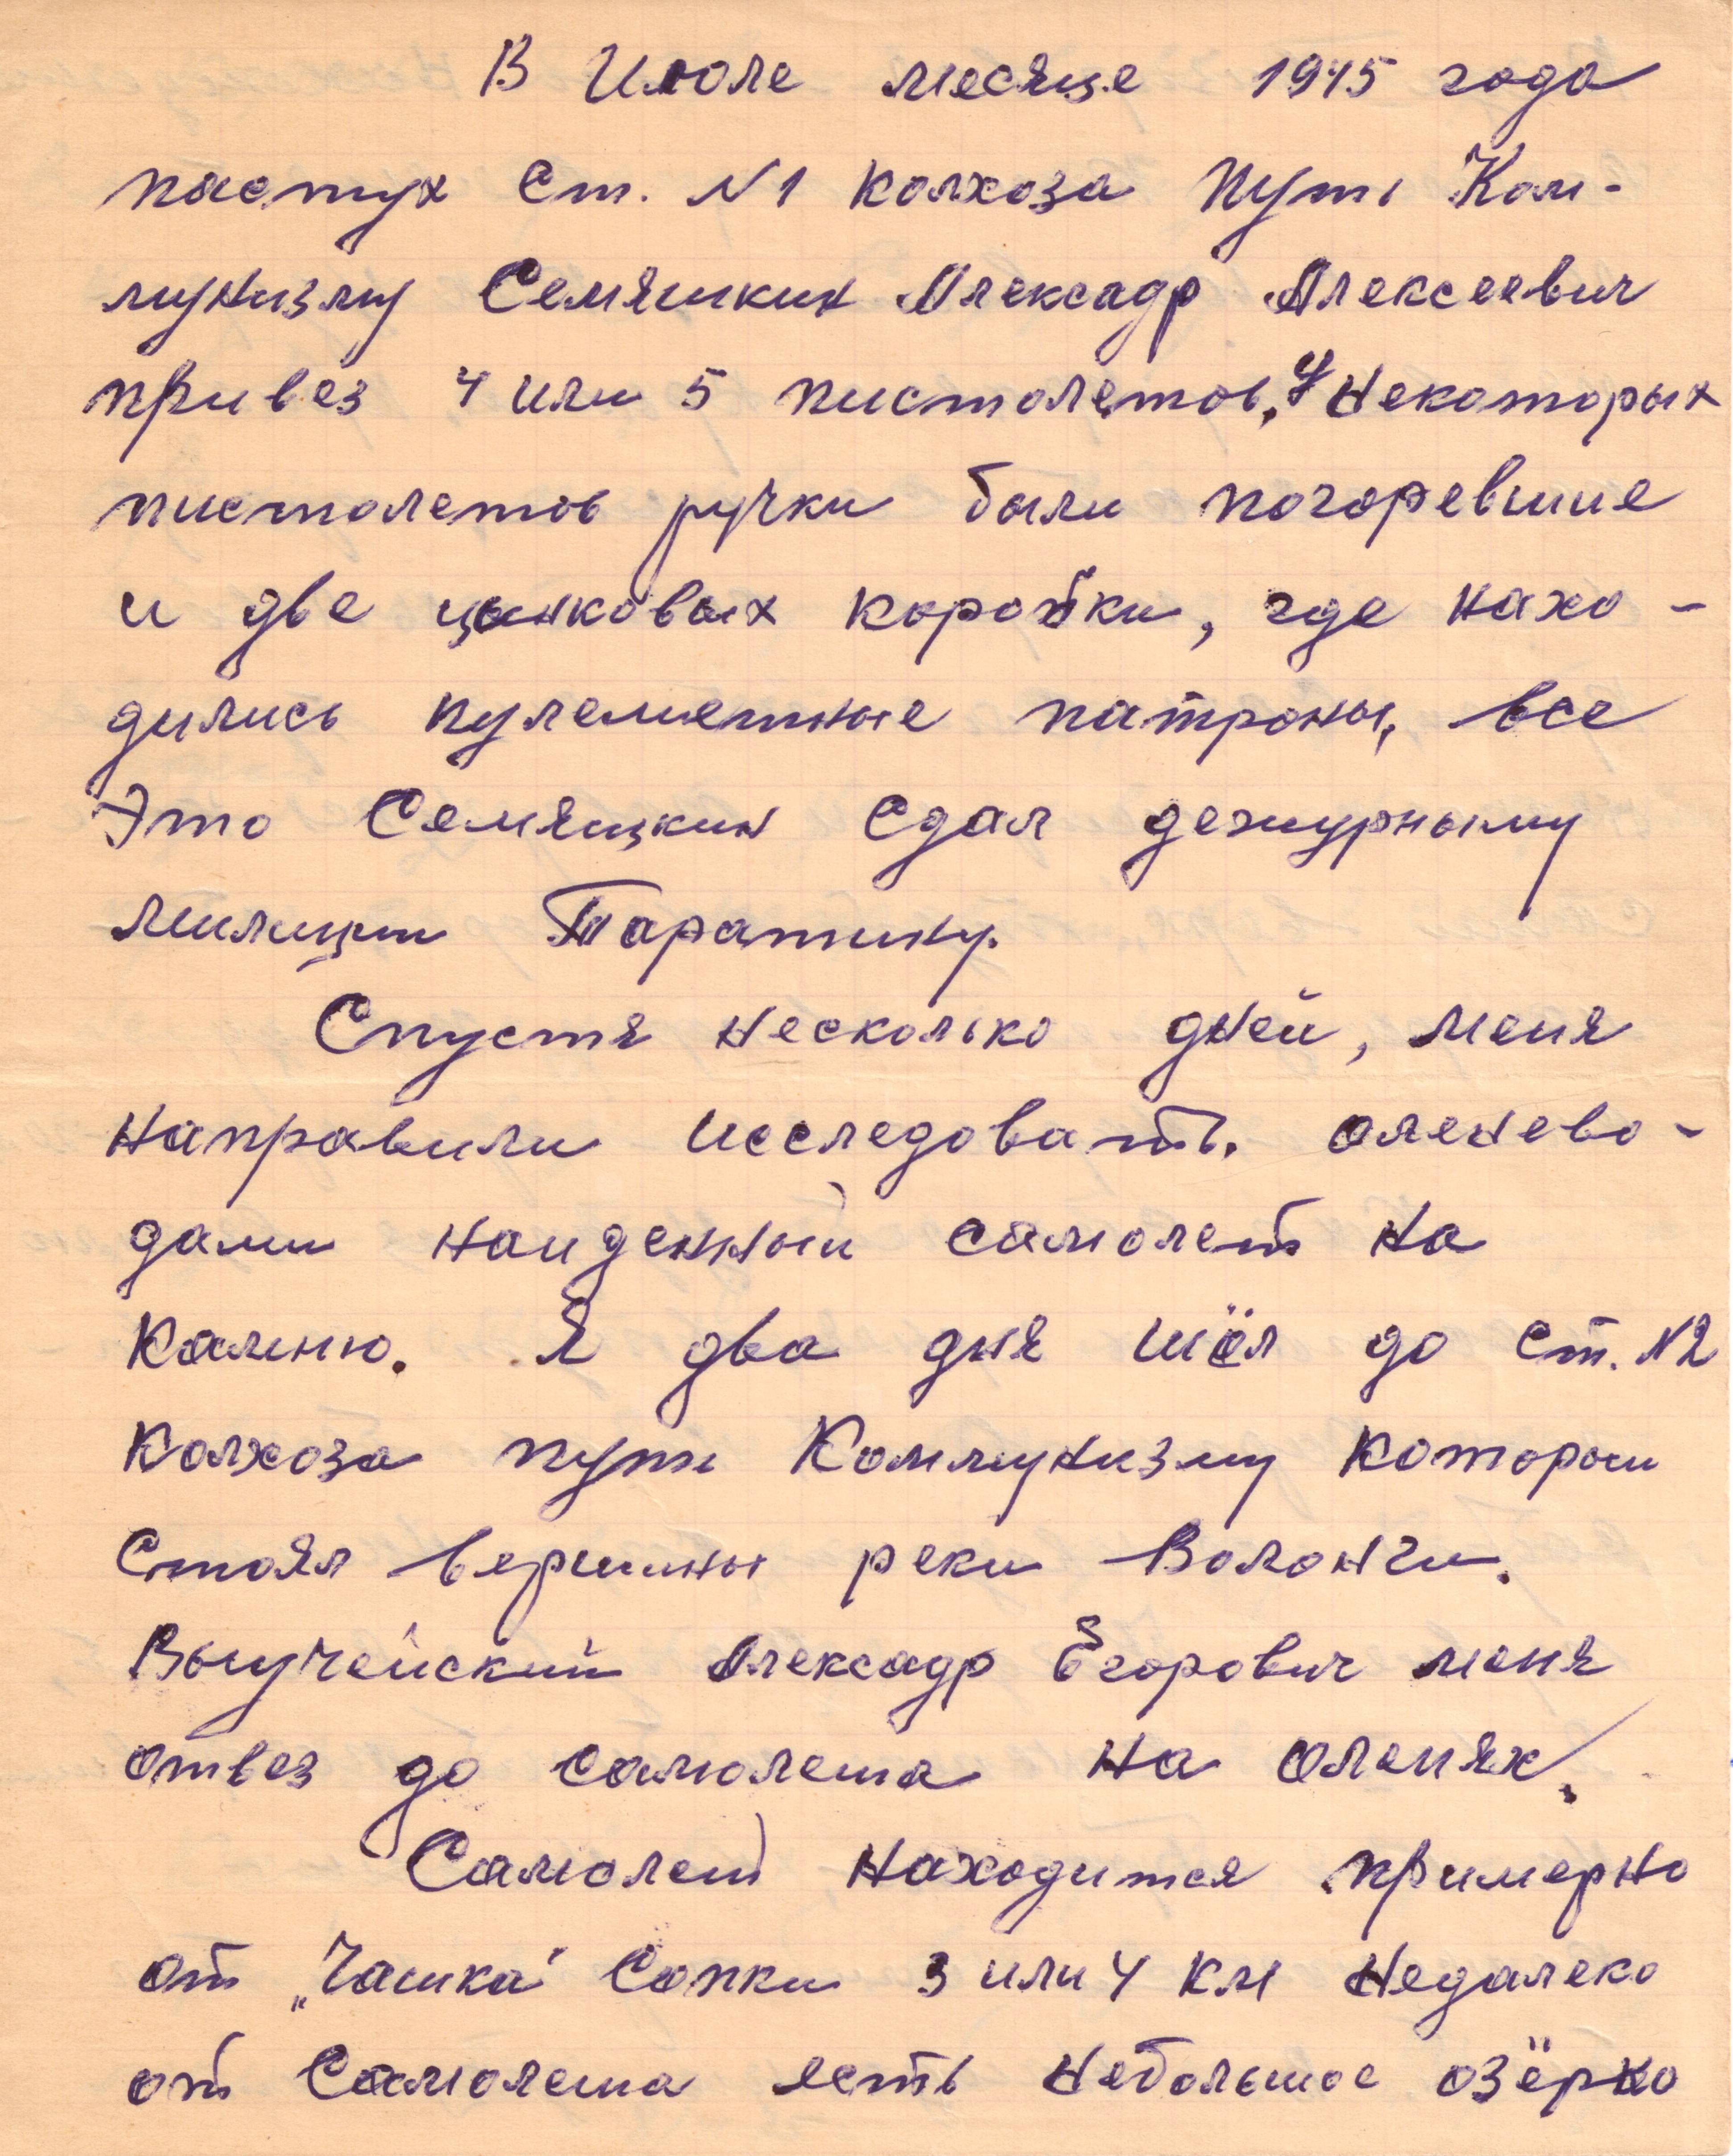 В Июле месяце 1945 года
пастух ст. №1 колхоза Путь Ком-
мунизму Семяшкин Алексадр Алексеевич
привез 4 или 5 пистолетов, у некоторых
пистолетов ручки были погоревшие
и две цынковых коробки, где нахо-
дились пулеметные патроны, все
Это Семяшкин сдал дежурныму
милиции Таратину.
Спустя несколько дней, меня
направили исследовать оленево-
дами найденный самолет на
Камню. Я два дня шёл до ст. №2
Колхоза путь Коммунизму которые
стоял вершины реки Волонги.
Выучейский Алексадр Егорович меня
отвез до самолета на оленях.
Самолет находится примерно
от „Чашка" Сопки 3 или 4 км Недалеко
от Самолета есть небольшое озёрко